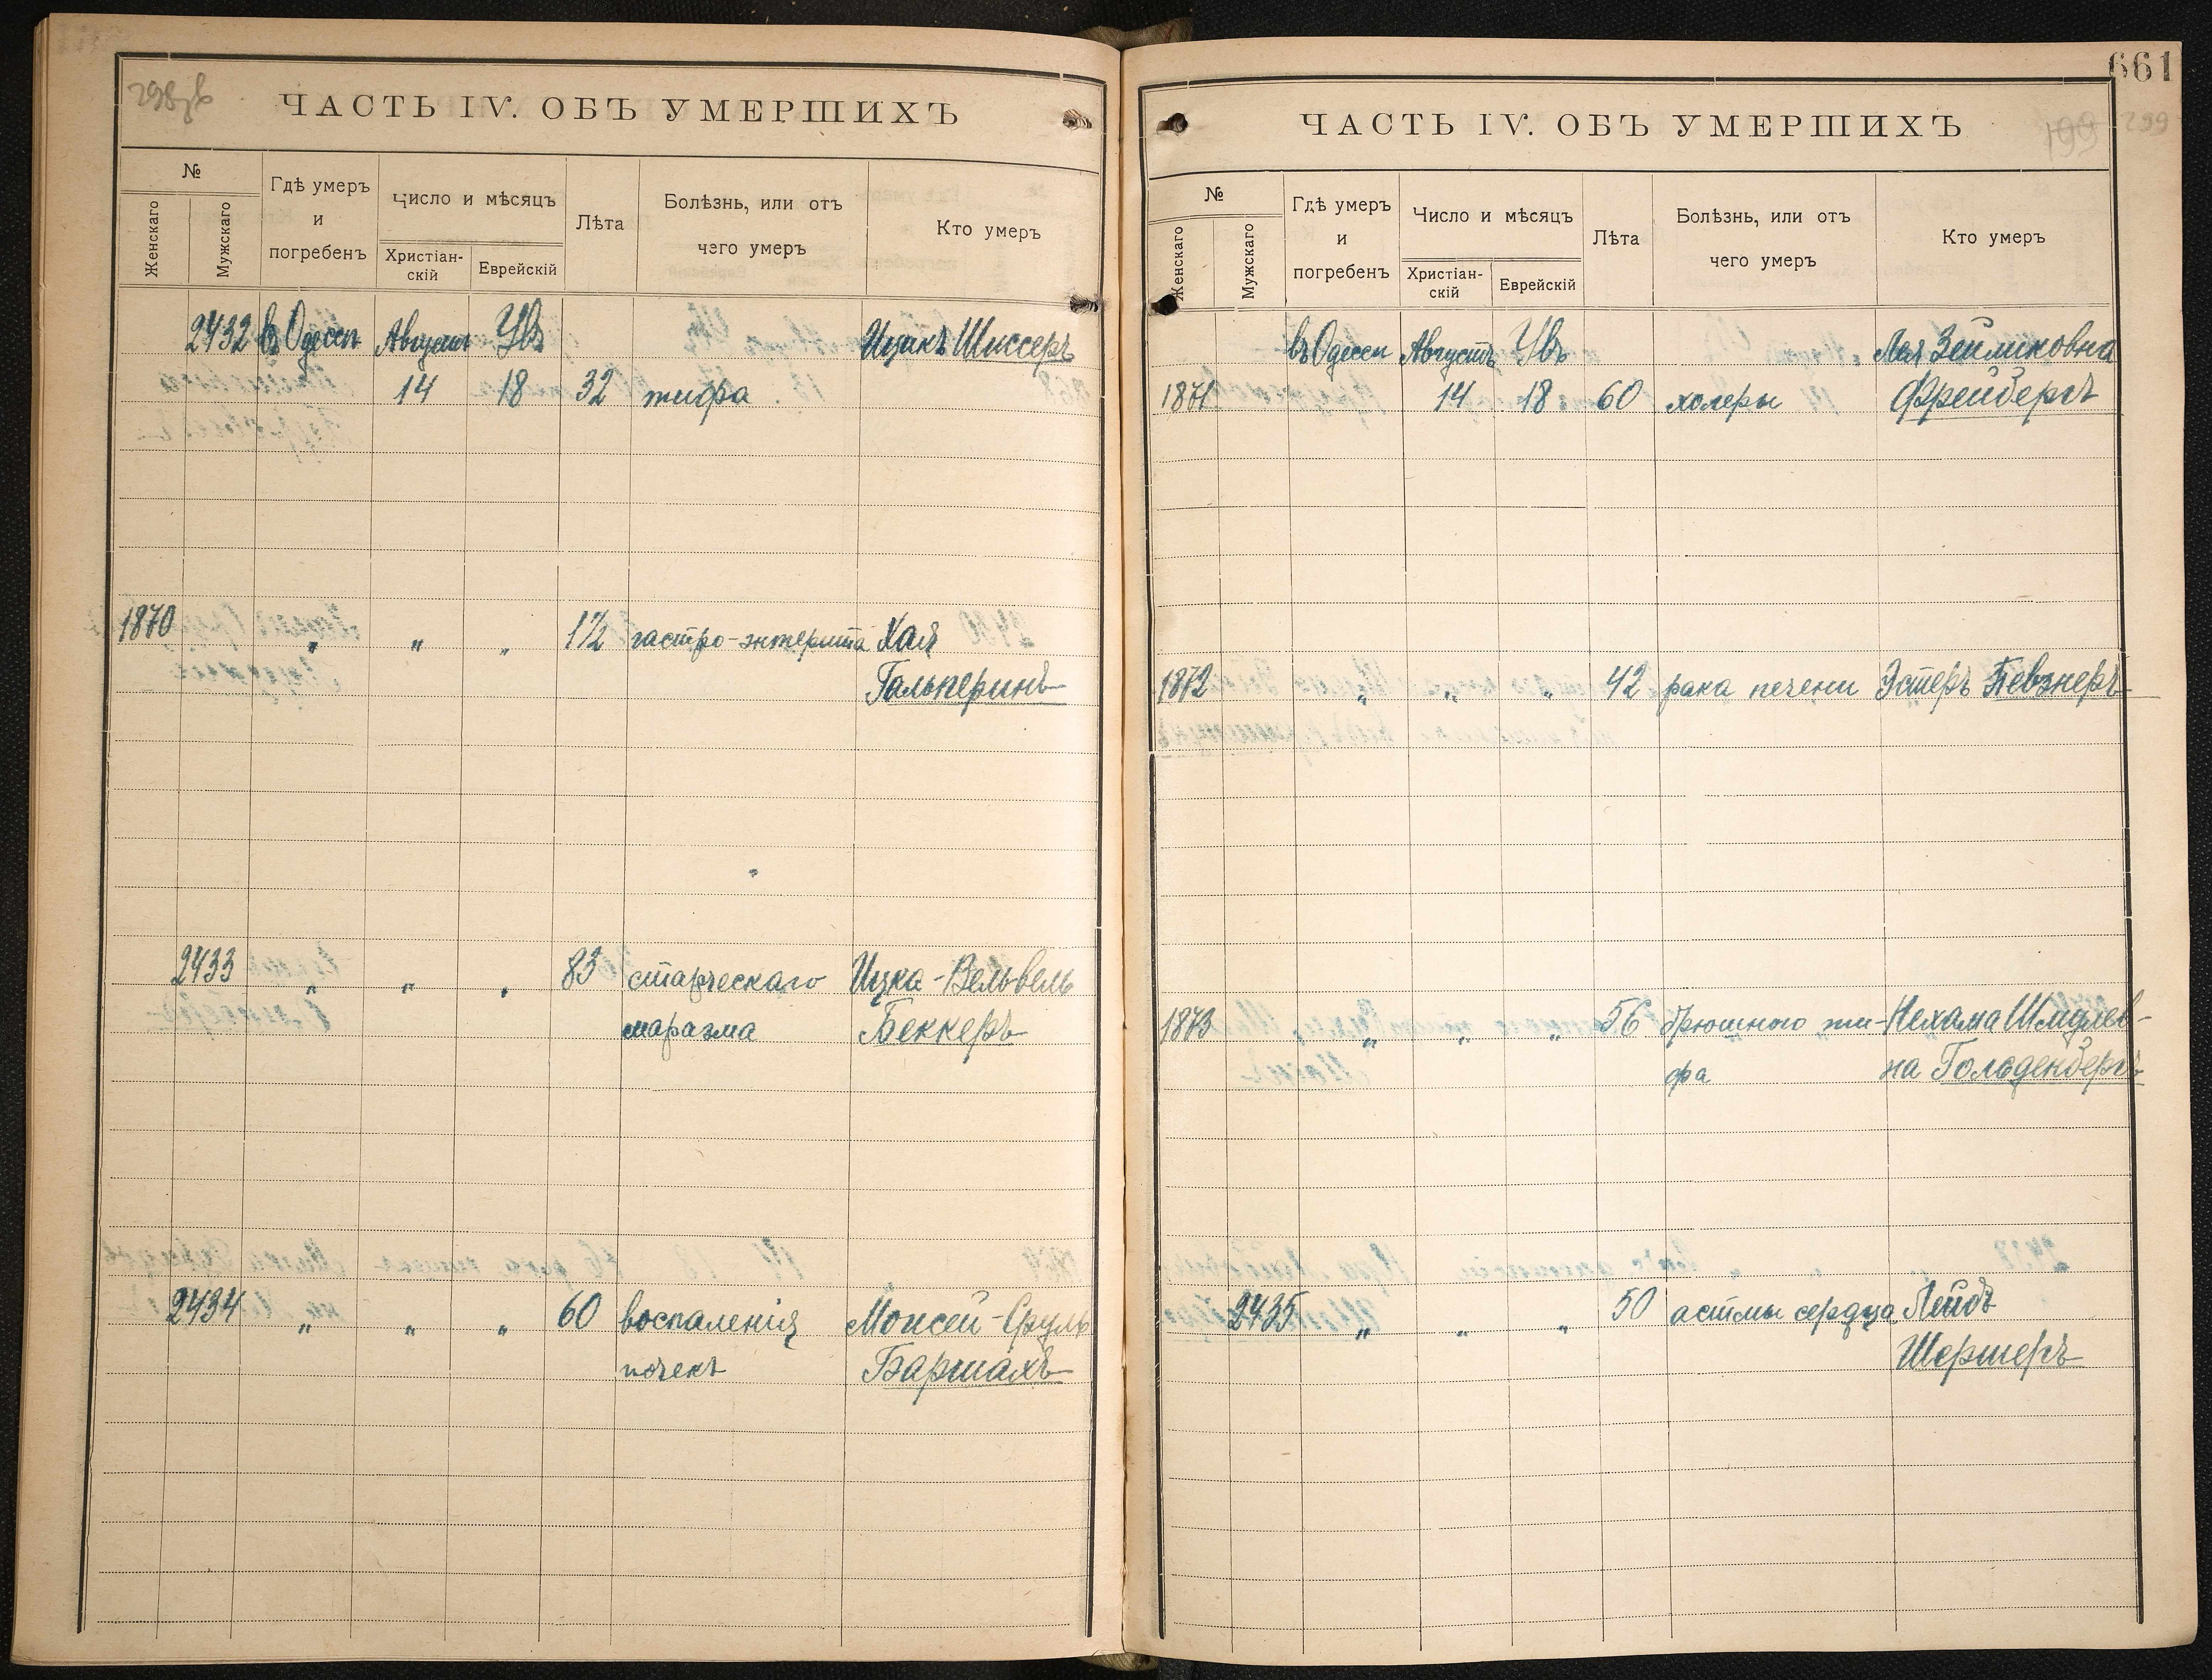 298 об
ЧАСТЬ IV. ОБЪ УМЕРШИХЪ
№
Женскаго
Мужскаго
Гдѣ умеръ
и
погребенъ
Число и мѣсяцъ
Христіан-
скій
Еврейскій
Лѣта
Болѣзнь, или отъ
чего умеръ
Кто умеръ
2432 въ Одессѣ Августъ Увъ Ицикъ Шиссеръ
14 18 32 тифа
1870 " " " 1½ гастро-энтерита Хая
Гальперинъ
2433 " " " 83 старческаго Ицка-Вельвель
маразма Беккеръ
2434 " " " 60 воспаленія Моисей-Сруль
почекъ Баршахъ
661
199 299
ЧАСТЬ IV. ОБЪ УМЕРШИХЪ
№
Женскаго
Мужскаго
Гдѣ умеръ
и
погребенъ
Число и мѣсяцъ
Христіан-
скій
Еврейскій
Лѣта
Болѣзнь, или отъ
чего умеръ
Кто умеръ
въ Одессѣ Августъ Увъ Лея Зейликовна
1871 14 18 60 холеры Фрейбергъ
1872 " " " 42 рака печени Эстеръ Певзнеръ
1873 " " " 56 брюшного ти- Нехама Шмулев-
фа на Гольденбергъ
2435 " " " 50 астмы сердца Лейбъ
Шермеръ